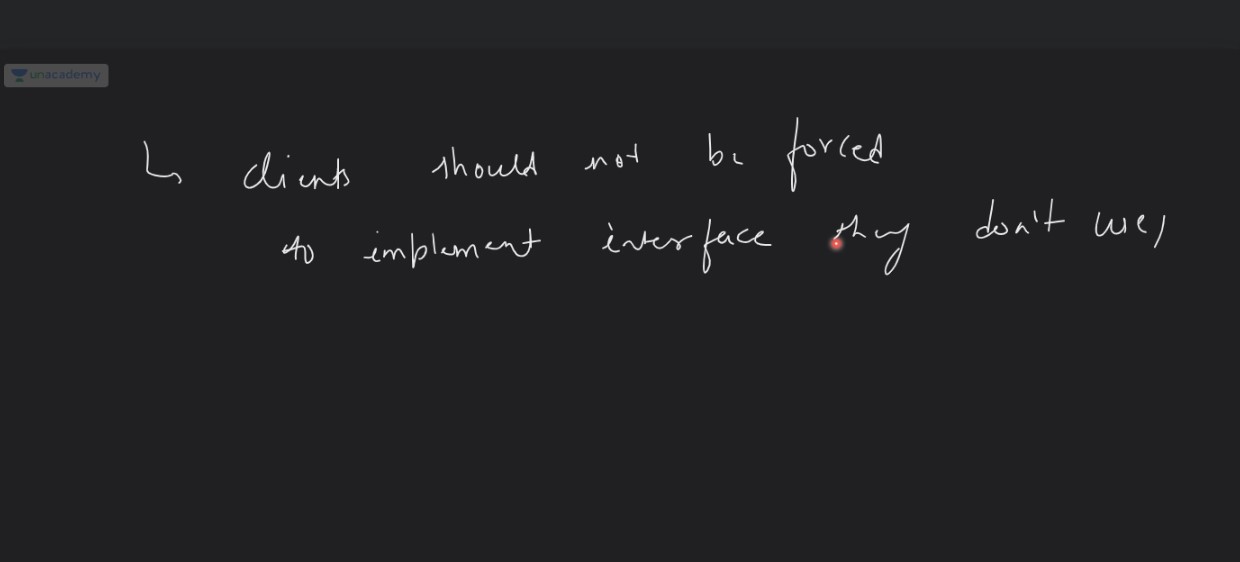 unacademy
↳ clients should not be forced
to implement interface they don't use,